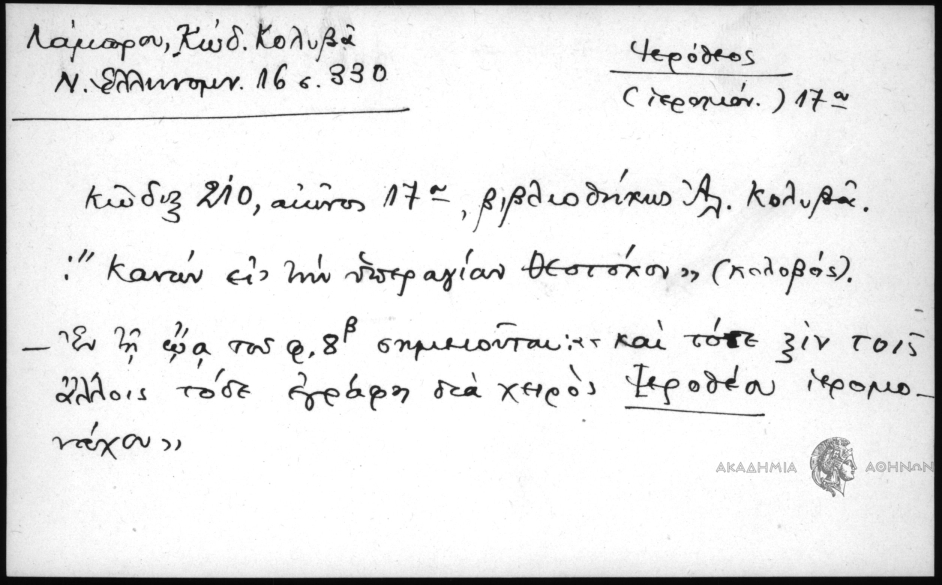 Λάμπρου, Κώδ. Κολυβᾶ
Ν. Ἑλληνομν. 16 σ. 330
Ἱερόθεος
(ἱερομόν.) 17 αι
Κῶδιξ 210, αἰῶνος 17 αι, βιβλιοθήκης Ἀλ. Κολυβᾶ.
:"Κανών εἰς τὴν ὑπεραγίαν Θεοτόκον» (κολοβός).
— Ἐν τῇ ᾤᾳ τοῦ φ. 8β σημειοῦται: «καὶ τόδε ξὶν τοῖς
ἄλλοις τόδε ἐγράφη διὰ χειρὸς Ἱεροθέου ἱερομο-
νάχου»
ΑΚΑΔΗΜΙΑ ΑΘΗΝΩΝ